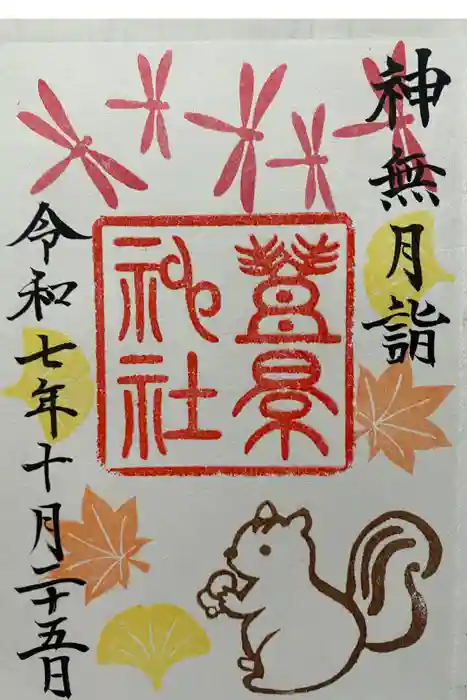 神無月詣
豊景
神社
令和七年十月二十五日